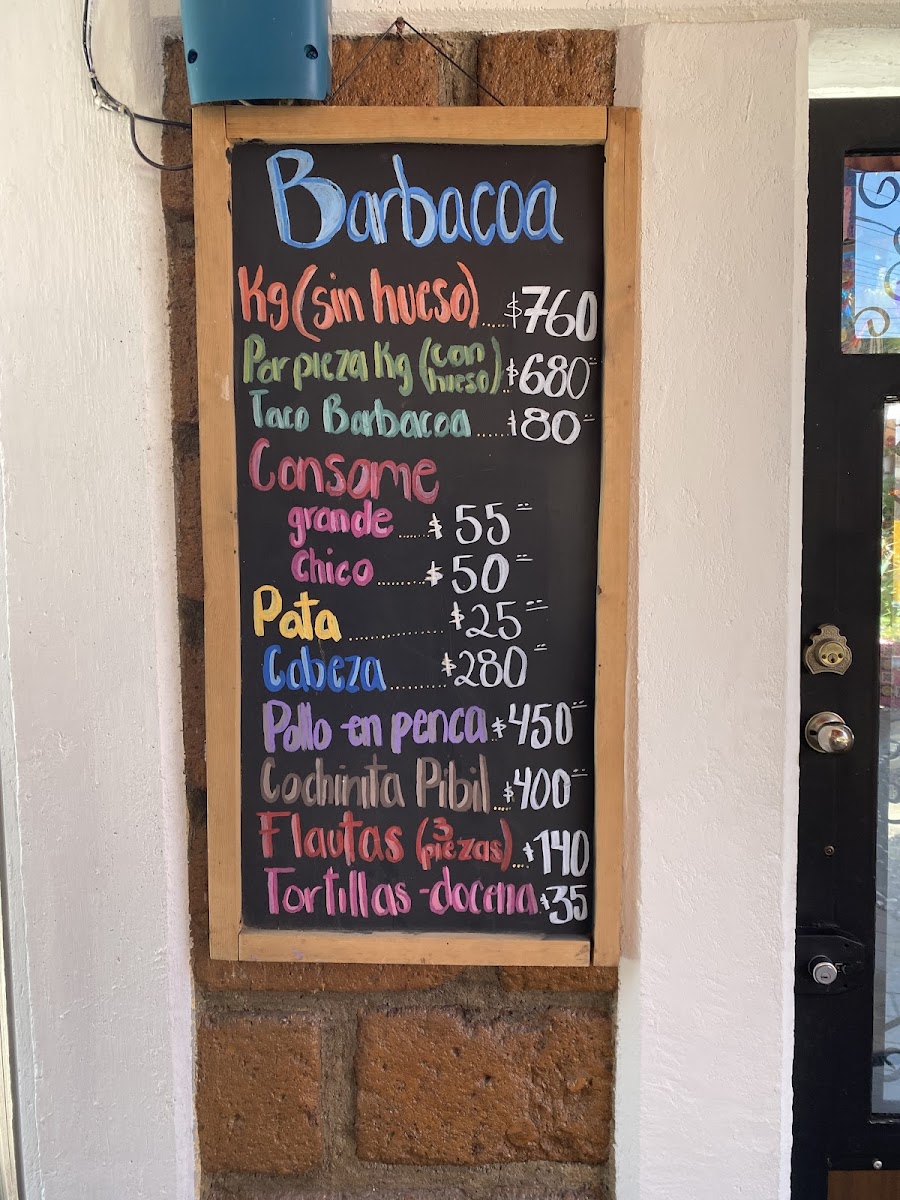 Barbacoa
Kg (sin hueso) ..... $760
Por pieza Kg (con hueso) .. $680
Taco Barbacoa ..... $80
Consome
grande ...... $55
chico ........ $50
Pata ............... $25
Cabeza ......... $280
Pollo en penca $450
Cochinita Pibil ... $400
Flautas (3 piezas) ... $140
Tortillas - docena . $35